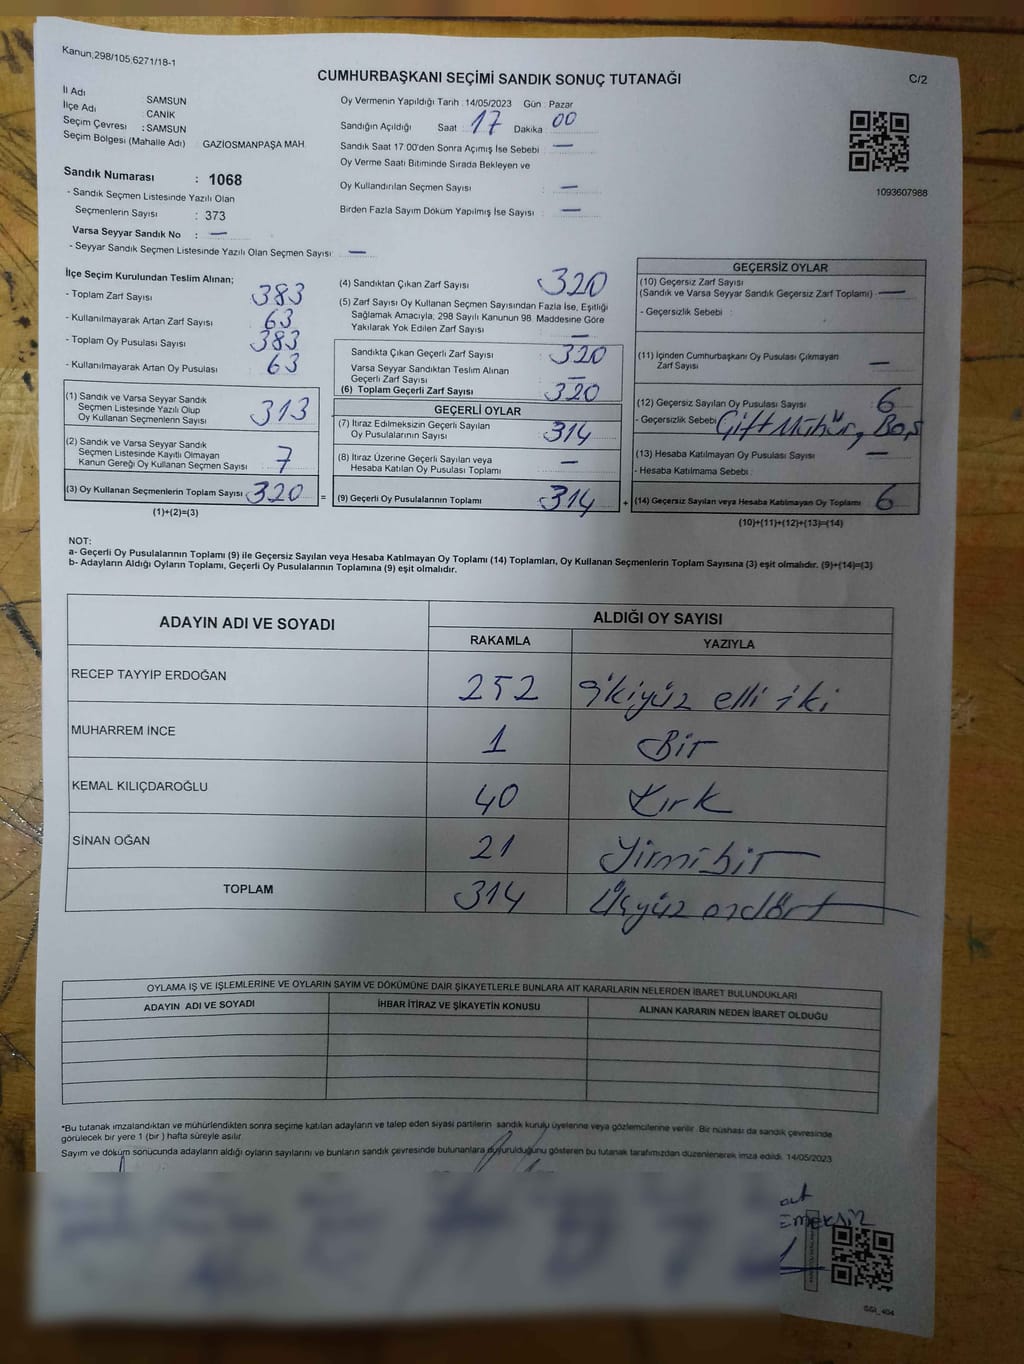 Kanun,298/105,6271/18-1
CUMHURBAŞKANI SEÇİMİ SANDIK SONUÇ TUTANAĞI
C/2
İl Adı SAMSUN
İlçe Adı CANİK
Seçim Çevresi : SAMSUN
Seçim Bölgesi (Mahalle Adı) GAZİOSMANPAŞA MAH.
Sandık Numarası : 1068
- Sandık Seçmen Listesinde Yazılı Olan
Seçmenlerin Sayısı : 373
Varsa Seyyar Sandık No : —
- Seyyar Sandık Seçmen Listesinde Yazılı Olan Seçmen Sayısı: —
Oy Vermenin Yapıldığı Tarih : 14/05/2023 Gün : Pazar
Sandığın Açıldığı Saat : 17 Dakika 00
Sandık Saat 17:00'den Sonra Açımış İse Sebebi —
Oy Verme Saati Bitiminde Sırada Bekleyen ve
Oy Kullandırılan Seçmen Sayısı : —
Birden Fazla Sayım Döküm Yapılmış İse Sayısı : —
1093607988
İlçe Seçim Kurulundan Teslim Alınan;
- Toplam Zarf Sayısı 383
- Kullanılmayarak Artan Zarf Sayısı 63
- Toplam Oy Pusulası Sayısı 383
- Kullanılmayarak Artan Oy Pusulası 63
(1) Sandık ve Varsa Seyyar Sandık
Seçmen Listesinde Yazılı Olup
Oy Kullanan Seçmenlerin Sayısı 313
(2) Sandık ve Varsa Seyyar Sandık
Seçmen Listesinde Kayıtlı Olmayan
Kanun Gereği Oy Kullanan Seçmen Sayısı 7
(3) Oy Kullanan Seçmenlerin Toplam Sayısı 320 =
(1)+(2)=(3)
(4) Sandıktan Çıkan Zarf Sayısı 320
(5) Zarf Sayısı Oy Kullanan Seçmen Sayısından Fazla İse, Eşitliği
Sağlamak Amacıyla, 298 Sayılı Kanunun 98. Maddesine Göre
Yakılarak Yok Edilen Zarf Sayısı —
Sandıkta Çıkan Geçerli Zarf Sayısı : 320
Varsa Seyyar Sandıktan Teslim Alınan
Geçerli Zarf Sayısı —
(6) Toplam Geçerli Zarf Sayısı 320
GEÇERLİ OYLAR
(7) İtiraz Edilmeksizin Geçerli Sayılan
Oy Pusulalarının Sayısı 314
(8) İtiraz Üzerine Geçerli Sayılan veya
Hesaba Katılan Oy Pusulası Toplamı —
(9) Geçerli Oy Pusulalarının Toplamı 314 +
GEÇERSİZ OYLAR
(10) Geçersiz Zarf Sayısı
(Sandık ve Varsa Seyyar Sandık Geçersiz Zarf Toplamı) —
- Geçersizlik Sebebi :
(11) İçinden Cumhurbaşkanı Oy Pusulası Çıkmayan
Zarf Sayısı —
(12) Geçersiz Sayılan Oy Pusulası Sayısı 6
- Geçersizlik Sebebi Çift Mühür, Boş
(13) Hesaba Katılmayan Oy Pusulası Sayısı —
- Hesaba Katılmama Sebebi :
(14) Geçersiz Sayılan veya Hesaba Katılmayan Oy Toplamı 6
(10)+(11)+(12)+(13)=(14)
NOT:
a- Geçerli Oy Pusulalarının Toplamı (9) ile Geçersiz Sayılan veya Hesaba Katılmayan Oy Toplamı (14) Toplamları, Oy Kullanan Seçmenlerin Toplam Sayısına (3) eşit olmalıdır. (9)+(14)=(3)
b- Adayların Aldığı Oyların Toplamı, Geçerli Oy Pusulalarının Toplamına (9) eşit olmalıdır.
ADAYIN ADI VE SOYADI ALDIĞI OY SAYISI
RAKAMLA YAZIYLA
RECEP TAYYİP ERDOĞAN 252 ikiyüz elli iki
MUHARREM İNCE 1 Bir
KEMAL KILIÇDAROĞLU 40 Kırk
SİNAN OĞAN 21 Yirmi bir
TOPLAM 314 Üçyüz ondört
OYLAMA İŞ VE İŞLEMLERİNE VE OYLARIN SAYIM VE DÖKÜMÜNE DAİR ŞİKAYETLERLE BUNLARA AİT KARARLARIN NELERDEN İBARET BULUNDUKLARI
ADAYIN ADI VE SOYADI İHBAR İTİRAZ VE ŞİKAYETİN KONUSU ALINAN KARARIN NEDEN İBARET OLDUĞU
*Bu tutanak imzalandıktan ve mühürlendikten sonra seçime katılan adayların ve talep eden siyasi partilerin sandık kurulu üyelerine veya gözlemcilerine verilir. Bir nüshası da sandık çevresinde
görülecek bir yere 1 (bir ) hafta süreyle asılır.
Sayım ve döküm sonucunda adayların aldığı oyların sayılarını ve bunların sandık çevresinde bulunanlara duyurulduğunu gösteren bu tutanak tarafımızdan düzenlenerek imza edildi. 14/05/2023